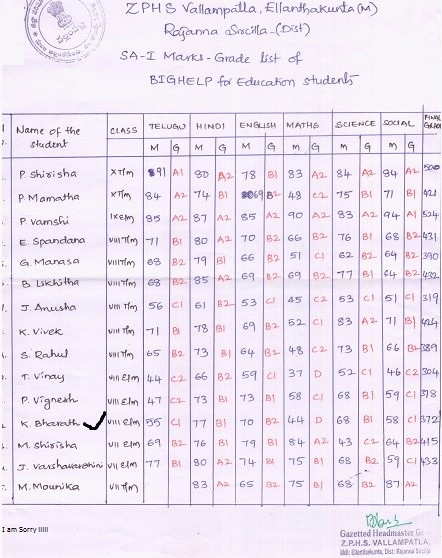 Z P H S Vallampatla, Ellanthakunta (M)
Rajanna Sircilla - (Dist)
SA-I Marks - Grade list of
BIGHELP for Education students
Name of the student CLASS TELUGU HINDI ENGLISH MATHS SCIENCE SOCIAL FINAL GRAD
M G M G M G M G M G M G
P. Shirisha X T/m 91 A1 80 A2 78 B1 83 A2 84 A2 84 A2 500
P. Mamatha X T/m 84 A2 74 B1 69 B2 48 C2 75 B1 71 B1 421
P. Vamshi IX E/m 85 A2 87 A2 85 A2 90 A2 83 A2 94 A1 524
E. Spandana VIII T/m 71 B1 80 A2 70 B2 66 B2 76 B1 68 B2 431
G. Manasa VIII T/m 68 B2 79 B1 66 B2 51 C1 62 B2 64 B2 390
B. Likhitha VIII T/m 68 B2 85 A2 69 B2 69 B2 77 B1 64 B2 432
J. Anusha VIII T/m 56 C1 61 B2 53 C1 45 C2 53 C1 51 C1 319
K. Vivek VIII T/m 71 B1 78 B1 69 B2 52 C1 83 A2 71 B1 424
S. Rahul VIII T/m 65 B2 73 B1 64 B2 48 C2 73 B1 66 B2 389
T. Vinay VIII E/m 44 C2 66 B2 59 C1 37 D 52 C1 46 C2 304
P. Vignesh VII E/m 47 C2 73 B1 73 B1 58 C1 68 B1 59 C1 378
K. Bharath VIII E/m 55 C1 77 B1 70 B2 44 D 68 B1 58 C1 372
M. Shirisha VII E/m 69 B2 76 B1 79 B1 84 A2 43 C2 64 B2 415
J. Varshavardhini VII E/m 77 B1 80 A2 74 B1 75 B1 68 B2 59 C1 433
M. Mounika VII T/m 83 A2 65 B2 75 B1 68 B2 87 A2
I am Sorry lllll
Gazetted Headmaster
Z.P.H.S. VALLAMPATLA,
Mdl: Ellanthakunta, Dist: Rajanna Sircilla